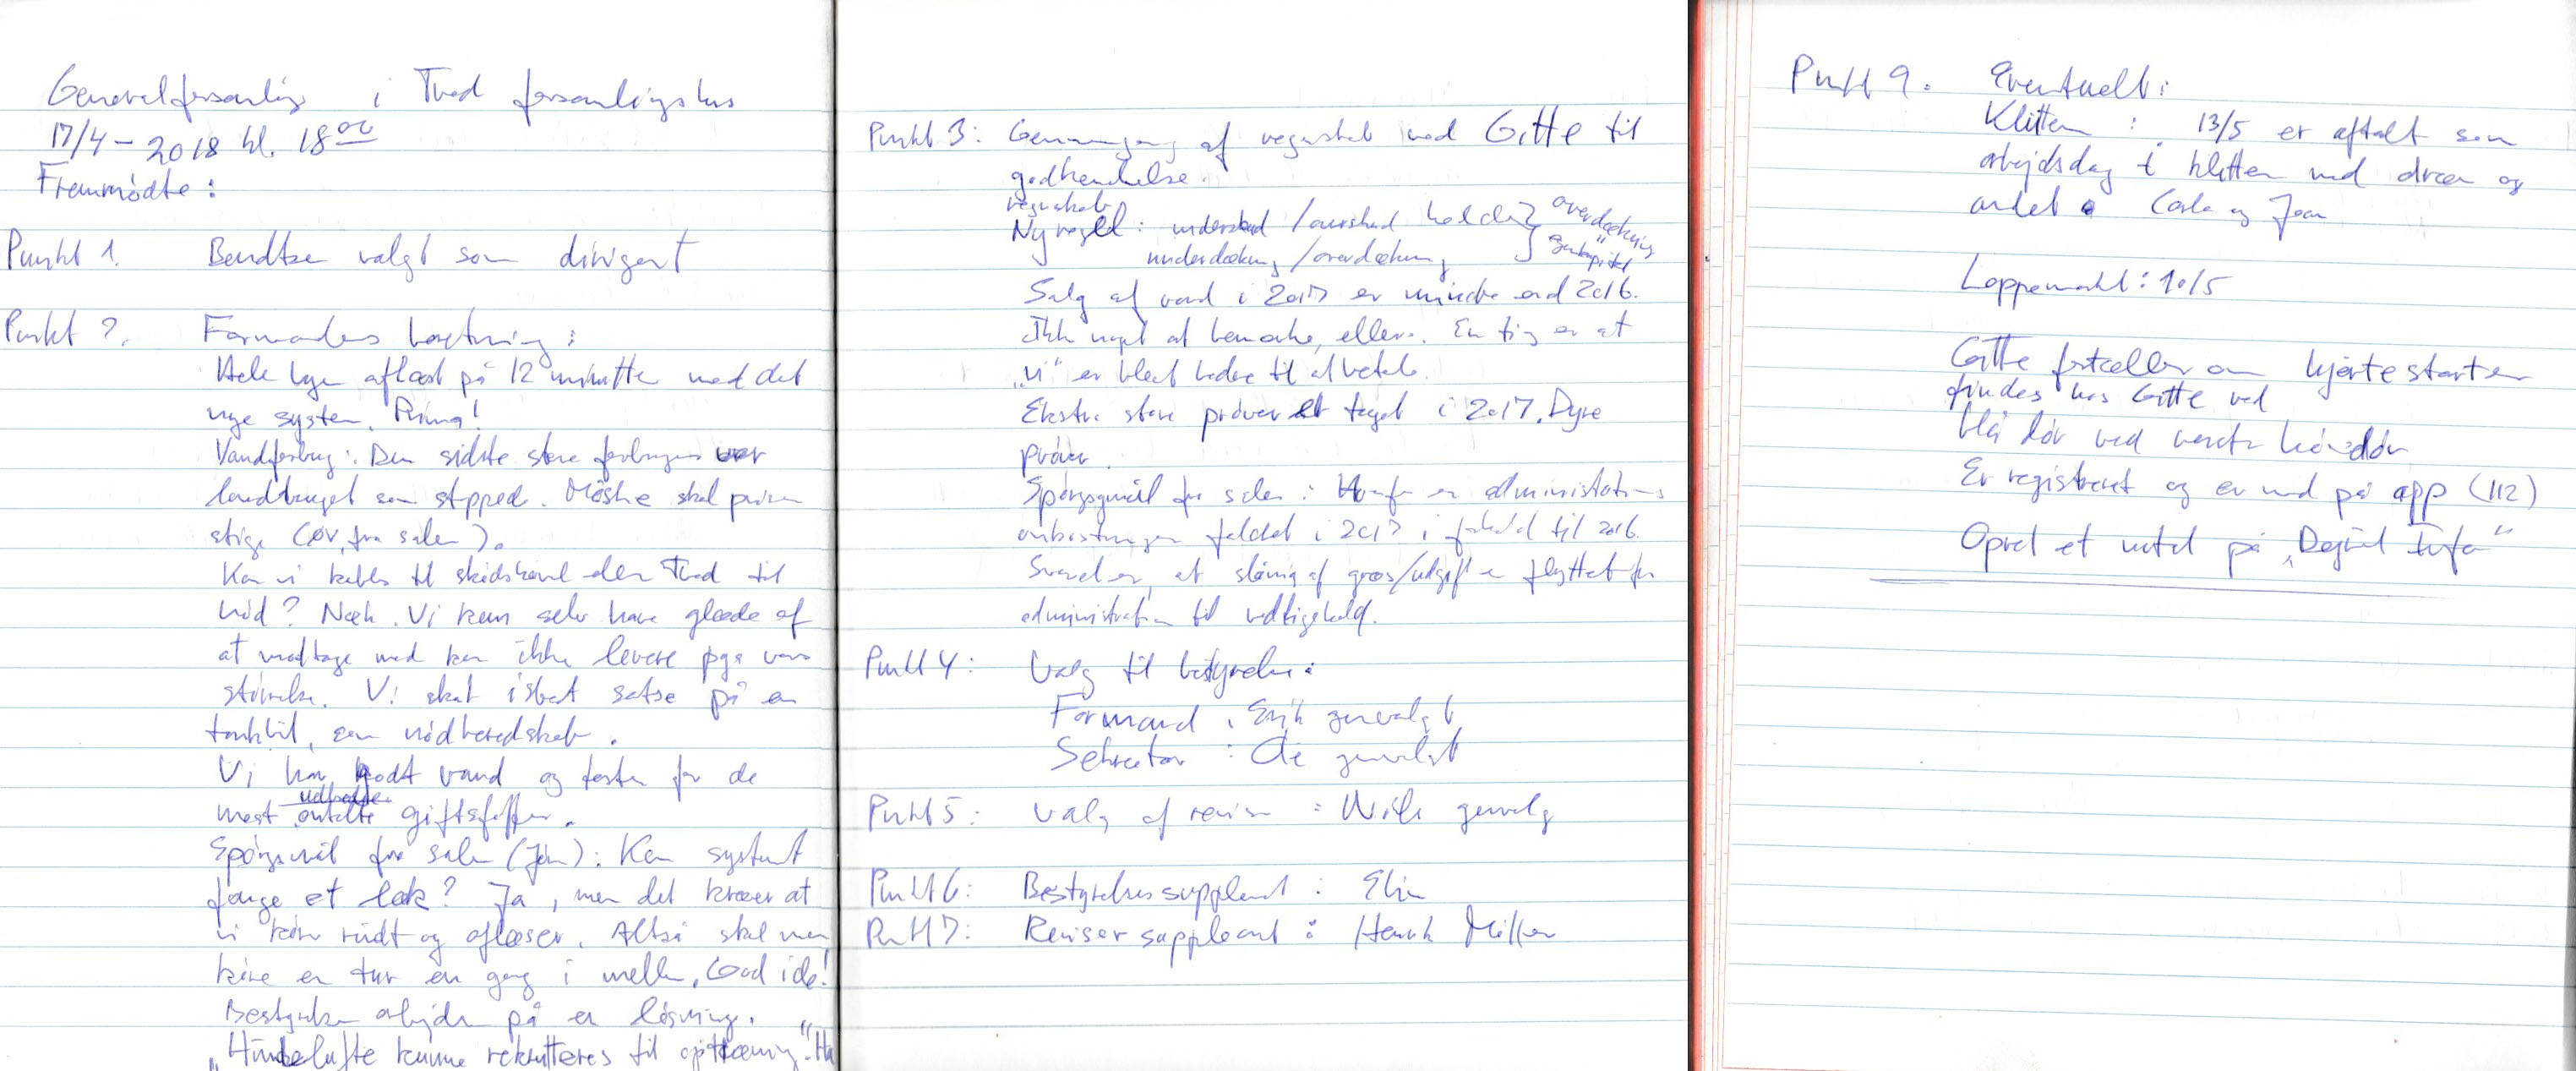 Generalforsamling i Tved forsamlingshus
17/4 - 2018 kl. 18 00
Fremmødte :
Punkt 1. Bendtsen valgt som dirigent
Punkt 2. Formandens beretning :
Hele byen aflæst på 12 minutter med det
nye system. Prima!
Vandforbrug : Den sidste store forbruger var
landbruget som stopped. Måske skal prisen
stige (ØV, fra salen).
Kan vi kobles til skidshoved eller Tved til
nød? Næh. Vi kan selv have glæde af
at modtage med kan ikke levere pga vores
størrelse. Vi skal i stedet satse på en
tankbil, som nødberedskab.
Vi har godt vand og tester for de
mest udbredte giftstoffer.
Spørgsmål fra salen (Jørn) : Kan systemet
fange et læk? Ja, men det kræver at
vi kører rundt og aflæser. Altså skal man
køre en tur en gang i mellem. God ide!
Bestyrelsen arbejder på en løsning.
"Hundelufte kunne rekrutteres til optræning". Ha
Punkt 3 : Gennemgang af regnskab ved Gitte til
godkendelse.
regnskab
Ny regel : underskud / overskud hedder overdækning
underdækning / overdækning egenkapital
Salg af vand i 2017 er mindre end 2016.
Ikke noget at bemærke, ellers. En ting er at
"vi" er blevet bedre til at betale.
Ekstra store prøver er taget i 2017. Dyre
prøver.
Spørgsmål fra salen : Hvorfor er administrations
omkostninger faldet i 2017 i forhold til 2016.
Svaret er, at slåning af græs/udgift er flyttet fra
administration til vedligehold.
Punkt 4 : Valg til bestyrelse :
Formand : Erik genvalgt
Sekretær : Ole genvalgt
Punkt 5 : Valg af revisor : genvalg
Punkt 6 : Bestyrelsessuppleant : Elin
Punkt 7 : Revisorsuppleant : Henrik Møller
Punkt 9. Eventuelt :
Klitten : 13/5 er aftalt som
arbejdsdag i klitten med dræn og
andet. Carla og Jean
Loppemarked : 10/5
Gitte fortæller om hjertestarter
findes hos Gitte ved
blå dør ved venstre hoveddør
Er registreret og er med på app (112)
Opret et mtd på "Dejret Info"